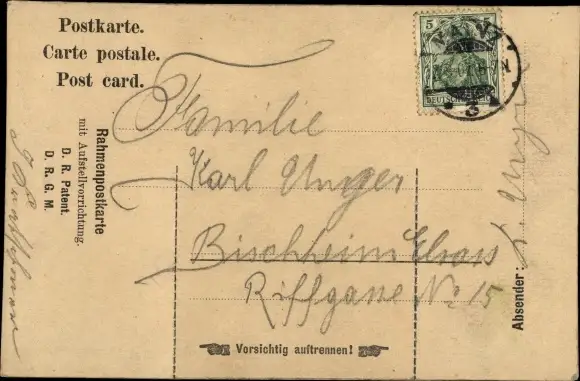 Postkarte.
Carte postale.
Post card.
5 5
MAINZ
DEUTSCHES
3
Familie
Karl Unger
Bischheim Elsass
Riffgasse No 15
Rahmenpostkarte
mit Aufstellvorrichtung.
D. R. Patent.
D. R. G. M.
Absender: K. Unger
Vorsichtig auftrennen!